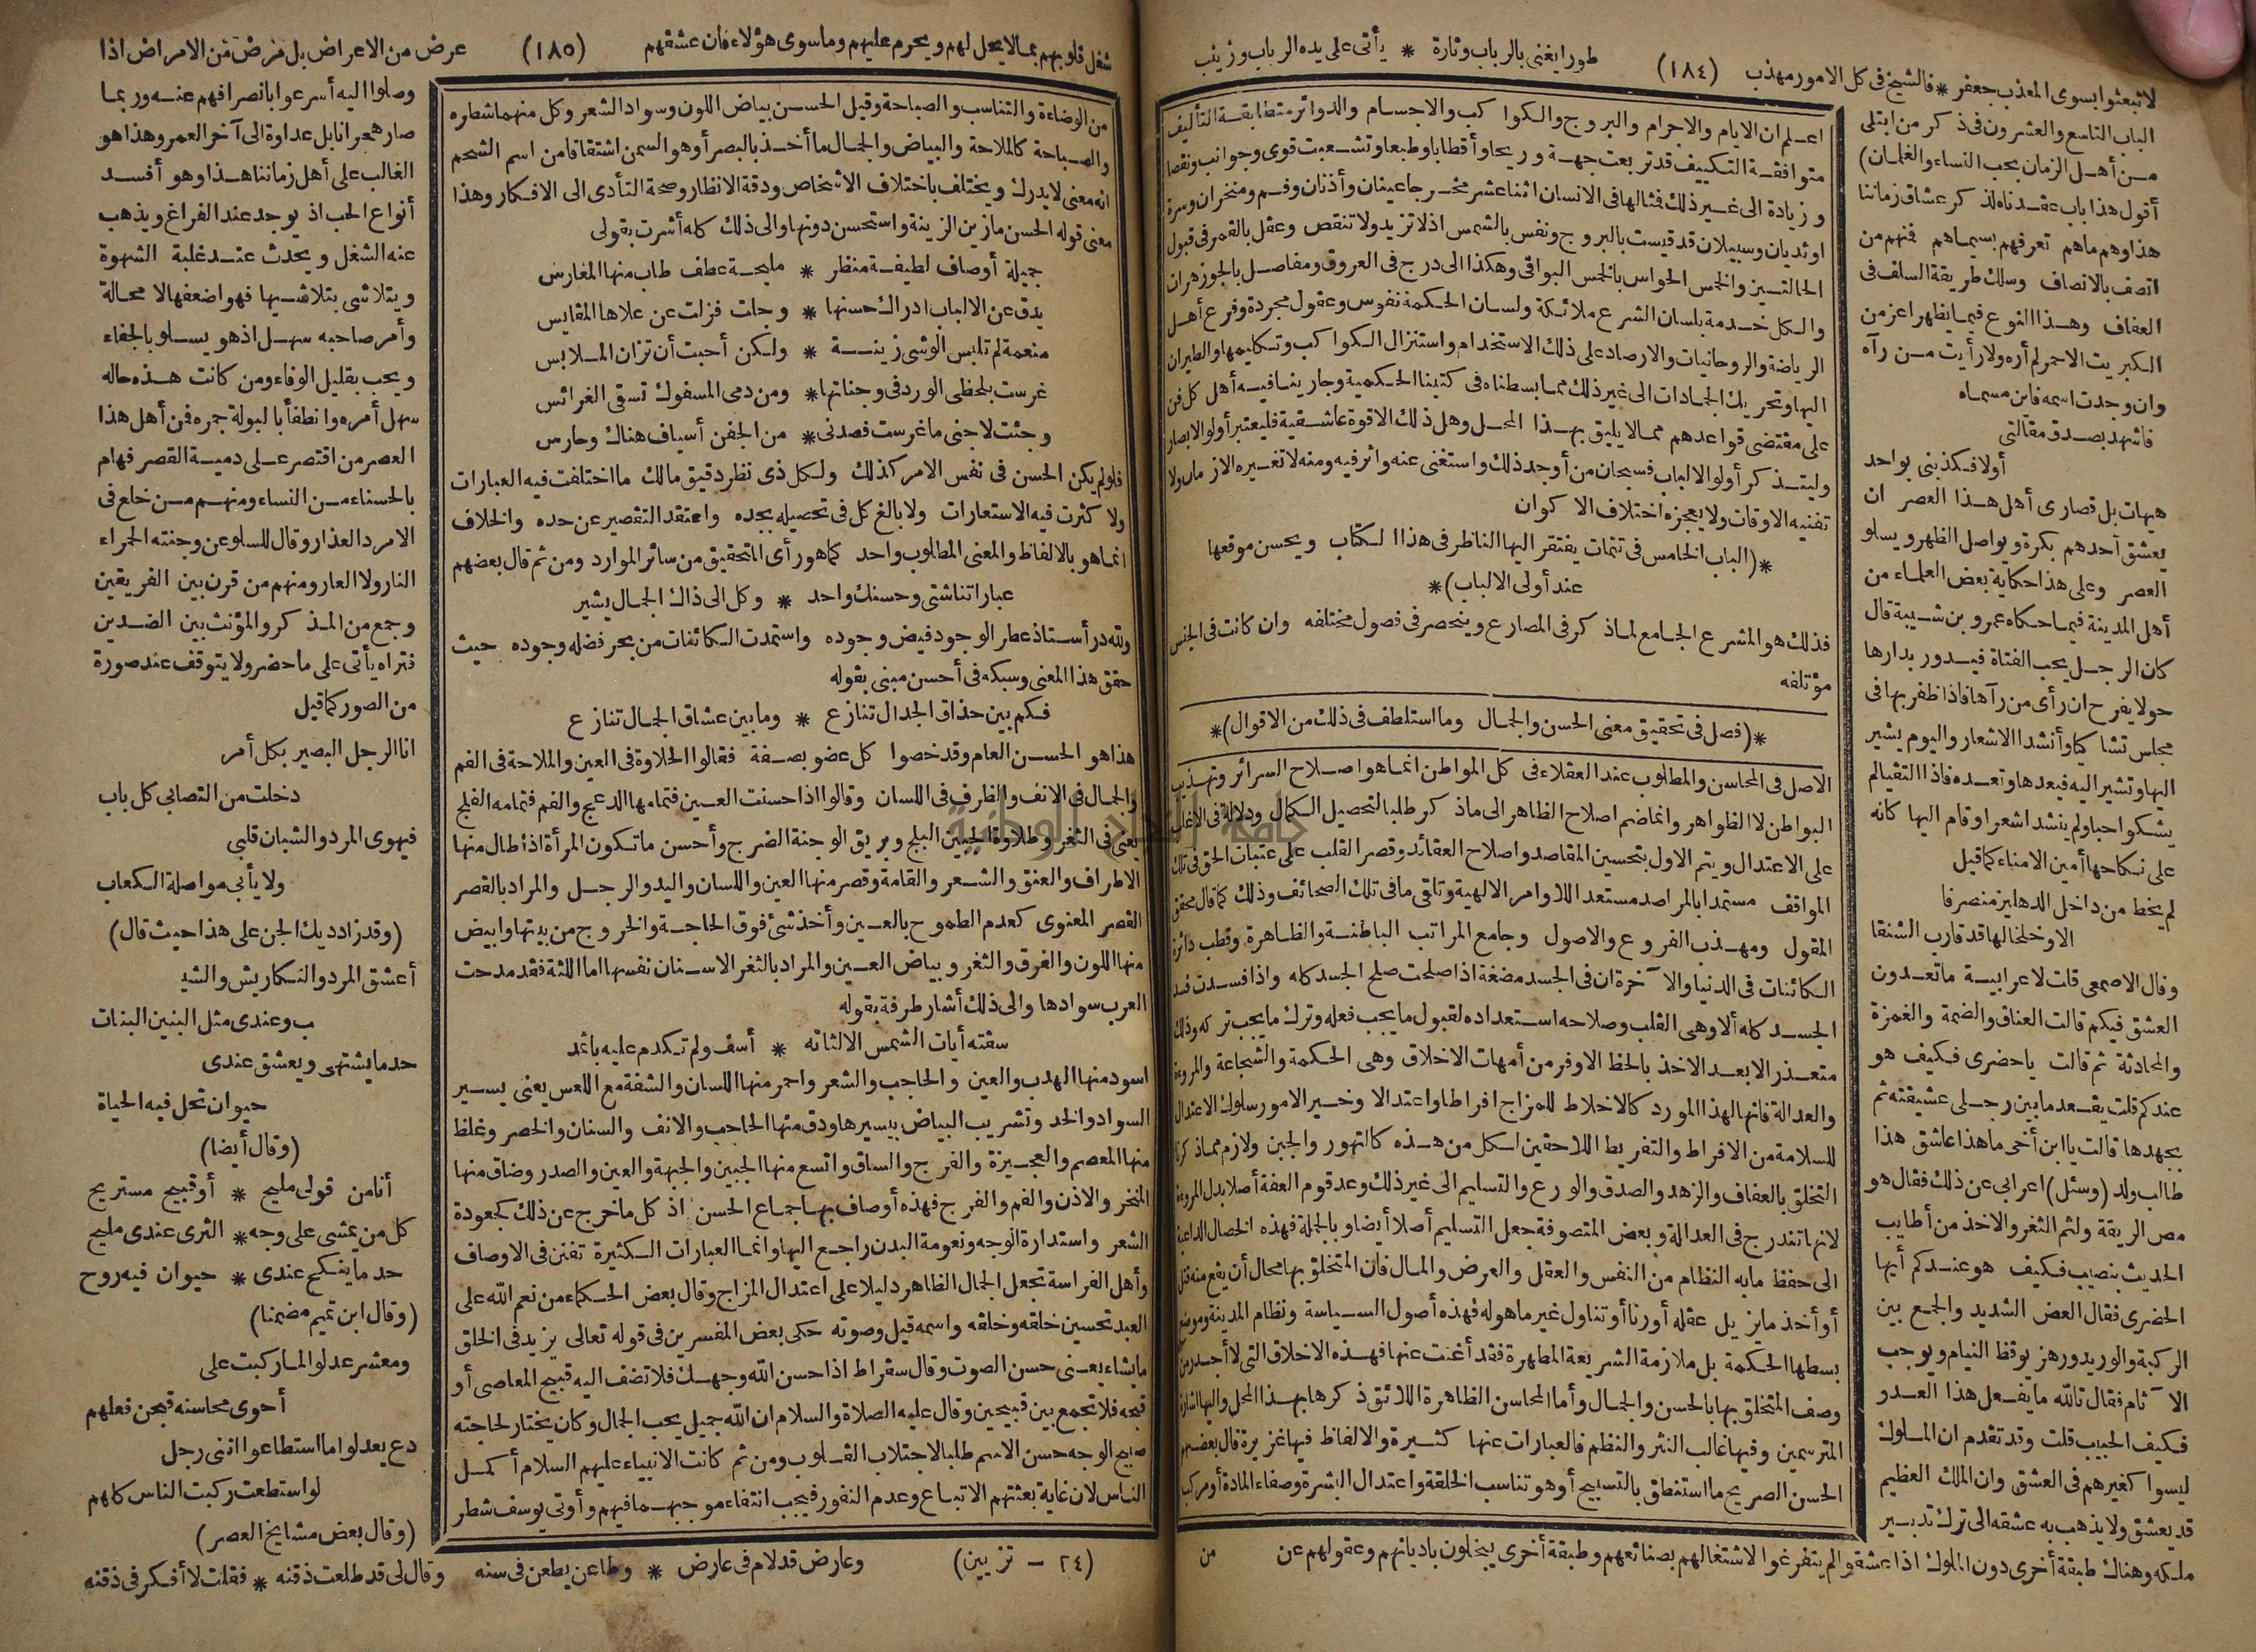 طورا يغنى بالرباب وتارة * يأتى على يده الرباب وزينب
(١٨٤)
لا تبعثوا بسوى المعذب جعفر * فالشيخ فى كل الامور مهذب
اعلم ان الايام والاجرام والبروج والكواكب والاجسام والدوائر متطابقة التأليف
متوافقة التكييف قد تربعت جهة وريحا وأقطابا وطبعا وتشعبت قوى وجوانب ونقصا
وزيادة الى غير ذلك فمثالها فى الانسان اثنا عشر مخرجا عينان وأذنان وفم ومنخران وسرة
اوثديان وسبيلان قد قيست بالبروج ونفس بالشمس اذ لا تزيد ولا تنقص وعقل بالقمر فى قبول
الحالتين والخمس الحواس بالخمس البواقى وهكذا الى درج فى العروق ومفاصل بالجوزهران
والكل خدمة بلسان الشرع ملائكة ولسان الحكمة نفوس وعقول مجردة وفرع أهل
الرياضة والروحانيات والارصاد على ذلك الاستخدام واستنزال الكواكب وتكليمها والطيران
اليها وتحريك الجمادات الى غير ذلك مما بسطناه فى كتبنا الحكمية وجارينا فيه أهل كل فن
على مقتضى قواعدهم مما لا يليق بهذا المحل وهل ذلك الاقوة عاشقية فليعتبر أولو الابصار
وليتذكر أولو الالباب فسبحان من أوجد ذلك واستغنى عنه واثر فيه ومنه لا تغيره الازمان ولا
تفنيه الاوقات ولا يعجزه اختلاف الاكوان
*(الباب الخامس فى تتمات يفتقر اليها الناظر فى هذا الكتاب ويحسن موقعها
عند أولى الالباب)*
فذلك هو المشرع الجامع لما ذكر فى المصارع وينحصر فى فصول مختلفه وان كانت فى الجنس
مؤتلفه
*(فصل فى تحقيق معنى الحسن والجمال وما استلطف فى ذلك من الاقوال)*
الاصل فى المحاسن والمطلوب عند العقلاء فى كل المواطن انما هو اصلاح السرائر وتهذيب
البواطن لا الظواهر وانما ضم اصلاح الظاهر الى ما ذكر طلبا لتحصيل الكمال ودلالة فى الاغلب
على الاعتدال ويتم الاول بتحسين المقاصد واصلاح العقائد وقصر القلب على عتبات الحق فى تلك
المواقف مستمدا بالمراصد مستعد اللاوامر الالهية وتلقى ما فى تلك الصحائف وذلك كما قال محقق
المقول ومهذب الفروع والاصول وجامع المراتب الباطنة والظاهرة وقطب دائرة
الكائنات فى الدنيا والآخرة ان فى الجسد مضغة اذا صلحت صلح الجسد كله واذا فسدت فسد
الجسد كله ألا وهى القلب وصلاحه استعداده لقبول ما يجب فعله وترك ما يجب تركه وذلك
متعذر الا بعد الاخذ بالحظ الاوفر من أمهات الاخلاق وهى الحكمة والشجاعة والمروءة
والعدالة فانها لهذا المورد كالاخلاط للمزاج افراطا واعتدالا وخير الامور سلوك الاعتدال
للسلامة من الافراط والتفريط اللاحقين لكل من هذه كالتهور والجبن ولازم مما ذكرنا
التخلق بالعفاف والزهد والصدق والورع والتسليم الى غير ذلك وعد قوم العفة أصلا بدل المروءة
لانها تندرج فى العدالة وبعض المتصوفة جعل التسليم أصلا أيضا وبالجملة فهذه الخصال الداعية
الى حفظ ما به النظام من النفس والعقل والعرض والمال فان المتخلق بها محال أن يقع منه قتل
أو أخذ ما يزيل عقله أو زنا أو تناول غير ما هو له فهذه أصول السياسة ونظام المدينة وموضع
بسطها الحكمة بل ملازمة الشريعة المطهرة فقد أغنت عنها فهذه الاخلاق التى لا أجدر من
وصف المتخلق بها بالحسن والجمال وأما المحاسن الظاهرة اللائق ذكرها بهذا المحل واليها اشارة
المترسمين وفيها غالب النثر والنظم فالعبارات عنها كثيرة والالفاظ فيها غزيرة قال بعضهم
الحسن الصريح ما استنطق بالتسبيح أو هو تناسب الخلقة واعتدال البشرة وصفاء المادة أو مركب
من
الباب التاسع والعشرون فى ذكر من ابتلى
من أهل الزمان بحب النساء والغلمان)
أقول هذا باب عقدناه لذكر عشاق زماننا
هذا وهم ما هم تعرفهم بسيماهم فمنهم من
اتصف بالانصاف وسلك طريقة السلف فى
العفاف وهذا النوع فيما يظهر اعز من
الكبريت الاحمر لم أره ولا رأيت من رآه
وان وجدت اسمه فاين مسماه
فاشهد بصدق مقالتى
أولا فكذبنى بواحد
هيهات بل قصارى أهل هذا العصر ان
يعشق أحدهم بكرة ويواصل الظهر ويسلو
العصر وعلى هذا حكاية بعض العلماء من
أهل المدينة فيما حكاه عمرو بن شيبة قال
كان الرجل يحب الفتاة فيدور بدارها
حولا يفرح ان رأى من رآها فاذا ظفر بها فى
مجلس تشاكيا وأنشد الاشعار واليوم يشير
اليها وتشير اليه فيعدها وتعده فاذا التقيا لم
يشكوا حبا ولم ينشد اشعرا وقام اليها كانه
على نكاحها أمين الامناء كما قيل
لم يخط من داخل الدهليز منصرفا
الا وخلخالها قد قارب الشنقا
وقال الاصمعى قلت لاعرابية ما تعدون
العشق فيكم قالت العناق والضمة والغمزة
والمحادثة ثم قالت يا حضرى فكيف هو
عندكم قلت يقعد ما بين رجلى عشيقته ثم
يجهدها قالت يا ابن أخى ما هذا عاشق هذا
طالب ولد (وسئل) اعرابى عن ذلك فقال هو
مص الريقة ولثم الثغر والاخذ من أطايب
الحديث بنصيب فكيف هو عندكم أيها
الحضرى فقال العض الشديد والجمع بين
الركبة والوريد ورهز يوقظ النيام ويوجب
الآثام فقال تالله ما يفعل هذا العدو
فكيف الحبيب قلت وقد تقدم ان الملوك
ليسوا كغيرهم فى العشق وان الملك العظيم
قد يعشق ولا يذهب به عشقه الى ترك تدبير
ملكه وهناك طبقة أخرى دون الملوك اذا عشقوا لم يتفرغوا لاشتغالهم بصنائعهم وطبقة أخرى يبخلون باديانهم وعقولهم عن
شغل قلوبهم بما لا يحل لهم ويحرم عليهم وما سوى هؤلاء فان عشقهم
(١٨٥)
عرض من الاعراض بل مرض من الامراض اذا
من الوضاءة والتناسب والصباحة وقيل الحسن بياض اللون وسواد الشعر وكل منهما شطره
والصباحة كالملاحة والبياض والجمال ما أخذ بالبصر أو هو السمن اشتقاقا من اسم الشحم
انه معنى لا يدرك ويختلف باختلاف الاشخاص ودقة الانظار وصحة التأدى الى الافكار وهذا
معنى قوله الحسن ما زين الزينة واستحسن دونها والى ذلك كله أشرت بقولى
جميلة أوصاف لطيفة منظر * مليحة عطف طاب منها المغارس
يدق عن الالباب ادراك حسنها * وجلت فزلت عن علاها المقايس
منعمة لم تلبس الوشى زينة * ولكن أحبت أن تزان الملابس
غرست بلحظى الورد فى وجناتها * ومن دمى المسفوك تسقى الغرائس
وجئت لاجنى ما غرست فصدنى * من الجفن أسياف هناك وحارس
فلو لم يكن الحسن فى نفس الامر كذلك ولكل ذى نظر دقيق مالك ما اختلفت فيه العبارات
ولا كثرت فيه الاستعارات ولا بالغ كل فى تحصيله بجده واعتقد التقصير عن حده والخلاف
انما هو بالالفاظ والمعنى المطلوب واحد كما هو رأى التحقيق من سائر الموارد ومن ثم قال بعضهم
عباراتنا شتى وحسنك واحد * وكل الى ذاك الجمال يشير
ولله در أستاذ عطر الوجود فيض وجوده واستمدت الكائنات من بحر فضله وجوده حيث
حقق هذا المعنى وسبكه فى أحسن مبنى بقوله
فكم بين حذاق الجدال تنازع * وما بين عشاق الجمال تنازع
هذا هو الحسن العام وقد خصوا كل عضو بصفة فقالوا الحلاوة فى العين والملاحة فى الفم
والجمال فى الانف والظرف فى اللسان وقالوا اذا حسنت العين فتمامها الدعج والفم فتمامه الفلج
يعنى فى الثغر وطلاوة الجبين البلج وبريق الوجنة الضرج وأحسن ما تكون المرأة اذا طال منها
الاطراف والعنق والشعر والقامة وقصر منها العين واللسان واليد والرجل والمراد بالقصر
القصر المعنوى كعدم الطموح بالعين وأخذ شئ فوق الحاجة والخروج من بيتها وابيض
منها اللون والفرق والثغر وبياض العين والمراد بالثغر الاسنان نفسها اما اللثة فقد مدحت
العرب سوادها والى ذلك أشار طرفة بقوله
سقته أيات الشمس الا لثاته * أسف ولم تكدم عليه باثمد
اسود منها الهدب والعين والحاجب والشعر واحمر منها اللسان والشفة مع اللعس يعنى يسير
السواد والخد وتشريب البياض بيسيرها ودق منها الحاجب والانف والسنان والخصر وغلظ
منها المعصم والعجيزة والفرج والساق واتسع منها الجبين والجبهة والعين والصدر وضاق منها
المنخر والاذن والفم والفرج فهذه أوصاف بها جماع الحسن اذ كل ما خرج عن ذلك كجعودة
الشعر واستدارة الوجه ونعومة البدن راجع اليها وانما العبارات الكثيرة تفنن فى الاوصاف
وأهل الفراسة تجعل الجمال الظاهر دليلا على اعتدال المزاج وقال بعض الحكماء من نعم الله على
العبد تحسين خلقه وخلقه واسمه قيل وصوته حكى بعض المفسرين فى قوله تعالى يزيد فى الخلق
ما يشاء يعنى حسن الصوت وقال سقراط اذا حسن الله وجهك فلا تضف اليه قبيح المعاصى أو
قبحه فلا تجمع بين قبيحين وقال عليه الصلاة والسلام ان الله جميل يحب الجمال وكان يختار لحاجته
صبيح الوجه حسن الاسم طلبا لاجتلاب القلوب ومن ثم كانت الانبياء عليهم السلام أكمل
الناس لان غاية بعثتهم الاتباع وعدم النفور فيجب انتفاء موجبه ما فيهم وأوتى يوسف شطر
(٢٤ – تزيين)
وصلوا اليه أسرعوا بانصرافهم عنه وربما
صار هجرانا بل عداوة الى آخر العمر وهذا هو
الغالب على أهل زماننا هذا وهو أفسد
أنواع الحب اذ يوجد عند الفراغ ويذهب
عنه الشغل ويحدث عند غلبة الشهوة
ويتلاشى بتلاشيها فهو اضعفها لا محالة
وأمر صاحبه سهل اذ هو يسلو بالجفاء
ويحب بقليل الوفاء ومن كانت هذه حاله
سهل أمره وانطفأ بالبولة جمره فمن أهل هذا
العصر من اقتصر على دمية القصر فهام
بالحسناء من النساء ومنهم من خلع فى
الامرد العذار وقال للسلو عن وجنته الحمراء
النار ولا العار ومنهم من قرن بين الفريقين
وجمع من المذكر والمؤنث بين الضدين
فتراه يأتى على ما حضر ولا يتوقف عند صورة
من الصور كما قيل
انا الرجل البصير بكل أمر
دخلت من التصابى كل باب
فيهوى المرد والشبان قلبى
ولا يأبى مواصلة الكعاب
(وقد زاد ديك الجن على هذا حيث قال)
أعشق المرد والنكاريش والشيـ
ـب وعندى مثل البنين البنات
حد ما يشتهى ويعشق عندى
حيوان تحل فيه الحياة
(وقال أيضا)
أنا من قولى مليح * أو قبيح مستريح
كل من يمشى على وجه * الثرى عندى مليح
حد ما ينكح عندى * حيوان فيه روح
(وقال ابن تميم مضمنا)
ومعشر عدلوا لما ركبت على
أحوى محاسنه قبحن فعلهم
دع يعدلوا ما استطاعوا اننى رجل
لو استطعت ركبت الناس كلهم
(وقال بعض مشايخ العصر)
وعارض قد لام فى عارض * وطاعن يطعن فى سنه
وقال لى قد طلعت ذقنه * فقلت لا أفكر فى ذقنه